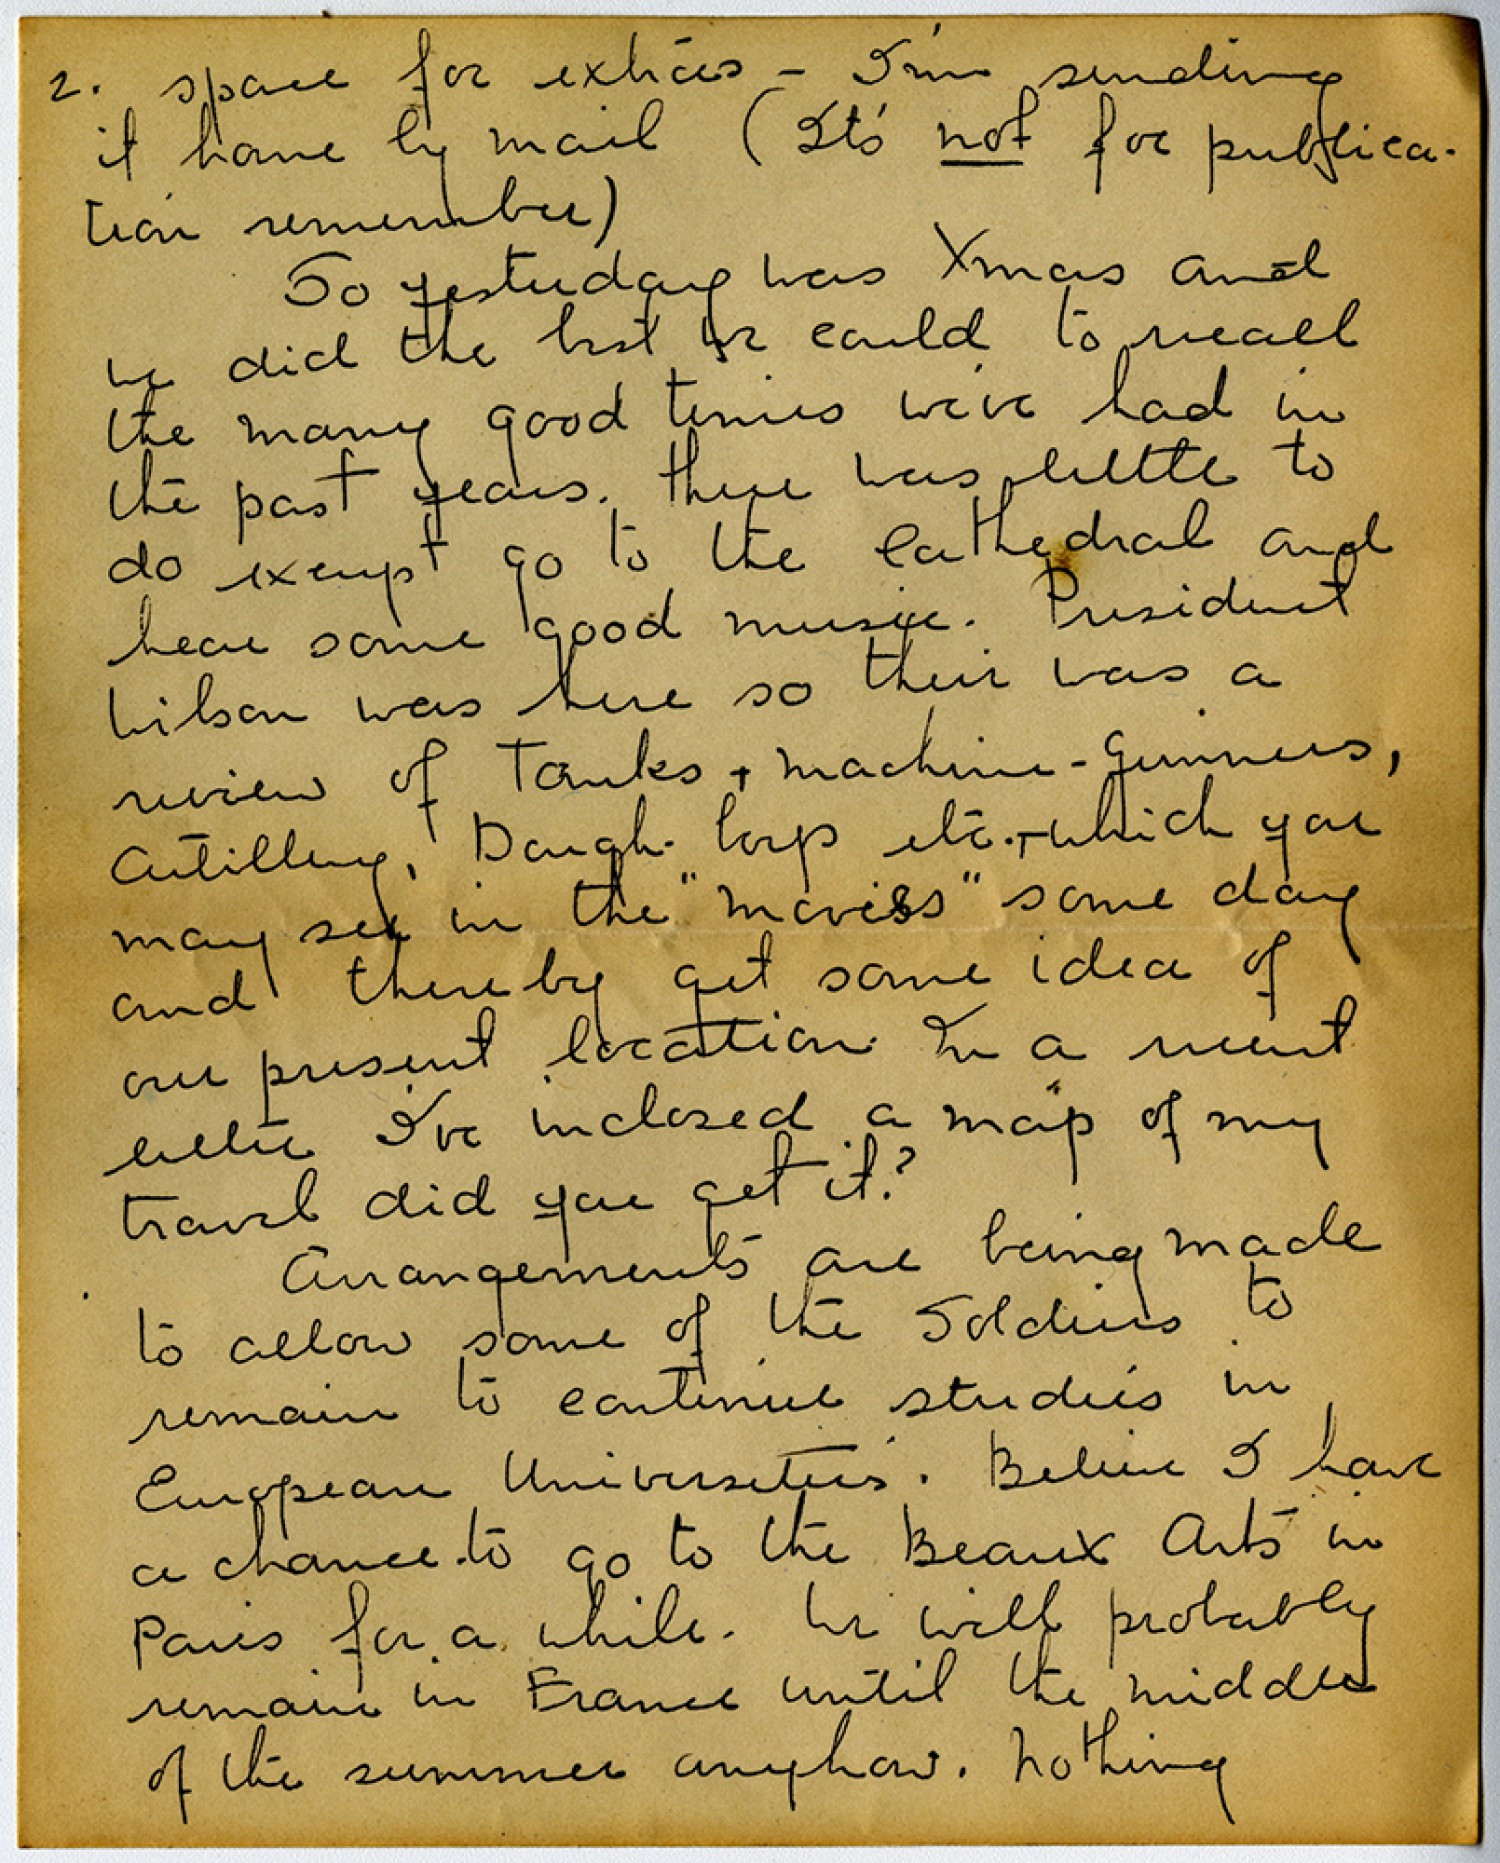 2. space for extries - I'm sending
it home by mail (It's not for publica-
tion remember)
So yesterday was Xmas and
we did the best we could to recall
the many good times we've had in
the past years. There was little to
do exempt go to the Cathedral and
hear some good music. President
Wilson was here so their was a
review of Tanks + machine-Gunners,
Artillery, Dough. Corps etc. - which you
may see in the "movies" some day
and thereby get some idea of
our present location. In a recent
letter I've inclosed a map of my
travel did you get it?
Arrangements are being made
to allow some of the Soldiers to
remain to continue studies in
European Universities. Believe I have
a chance to go to the Beaux Arts in
Paris for a while. We will probably
remain in France until the middle
of the summer anyhow. Nothing